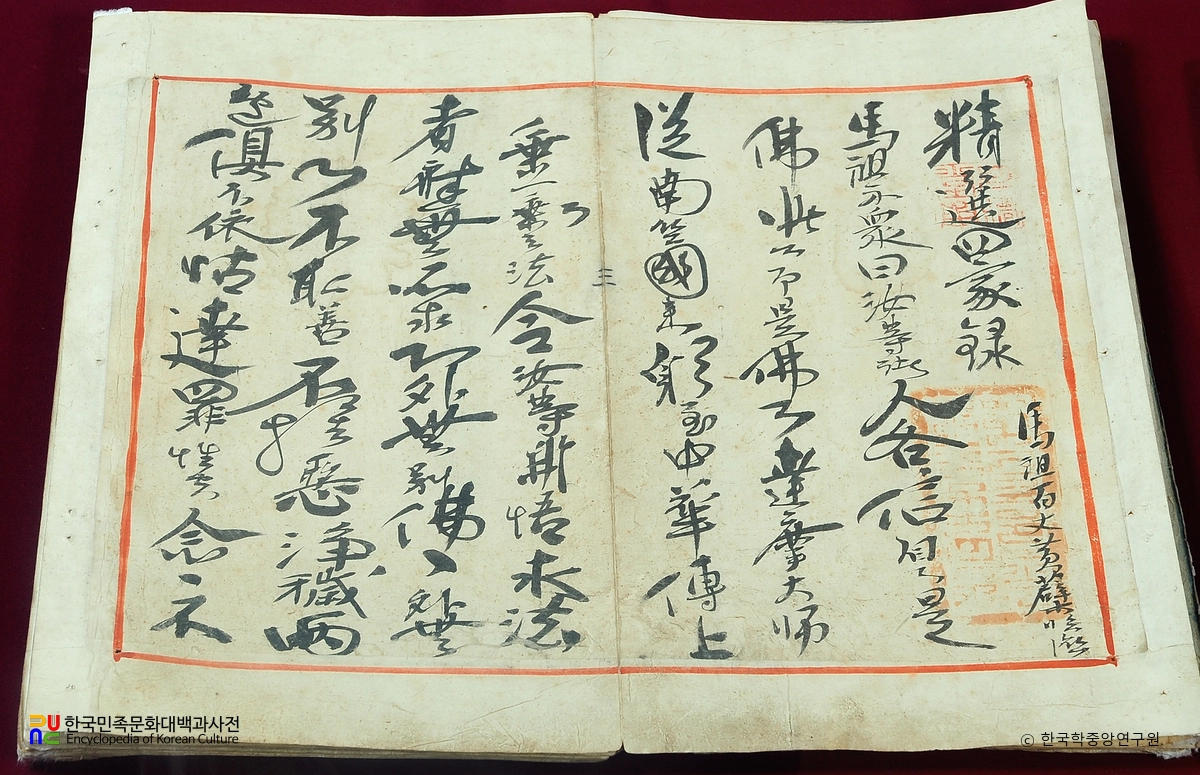 精選四家録
馬祖百丈黃蘗臨濟
馬祖示衆曰汝等諸人各信自心是
佛此心即是佛心達摩大師
從南竺國来躬至中華傳上
乘一心之法令汝等開悟求法
者應無所求心外無別佛〻外無
別心不取善不捨惡淨穢兩
邊俱不依怙達罪性空念〻不
三
한국민족문화대백과사전
Encyclopedia of Korean Culture
ⓒ 한국학중앙연구원